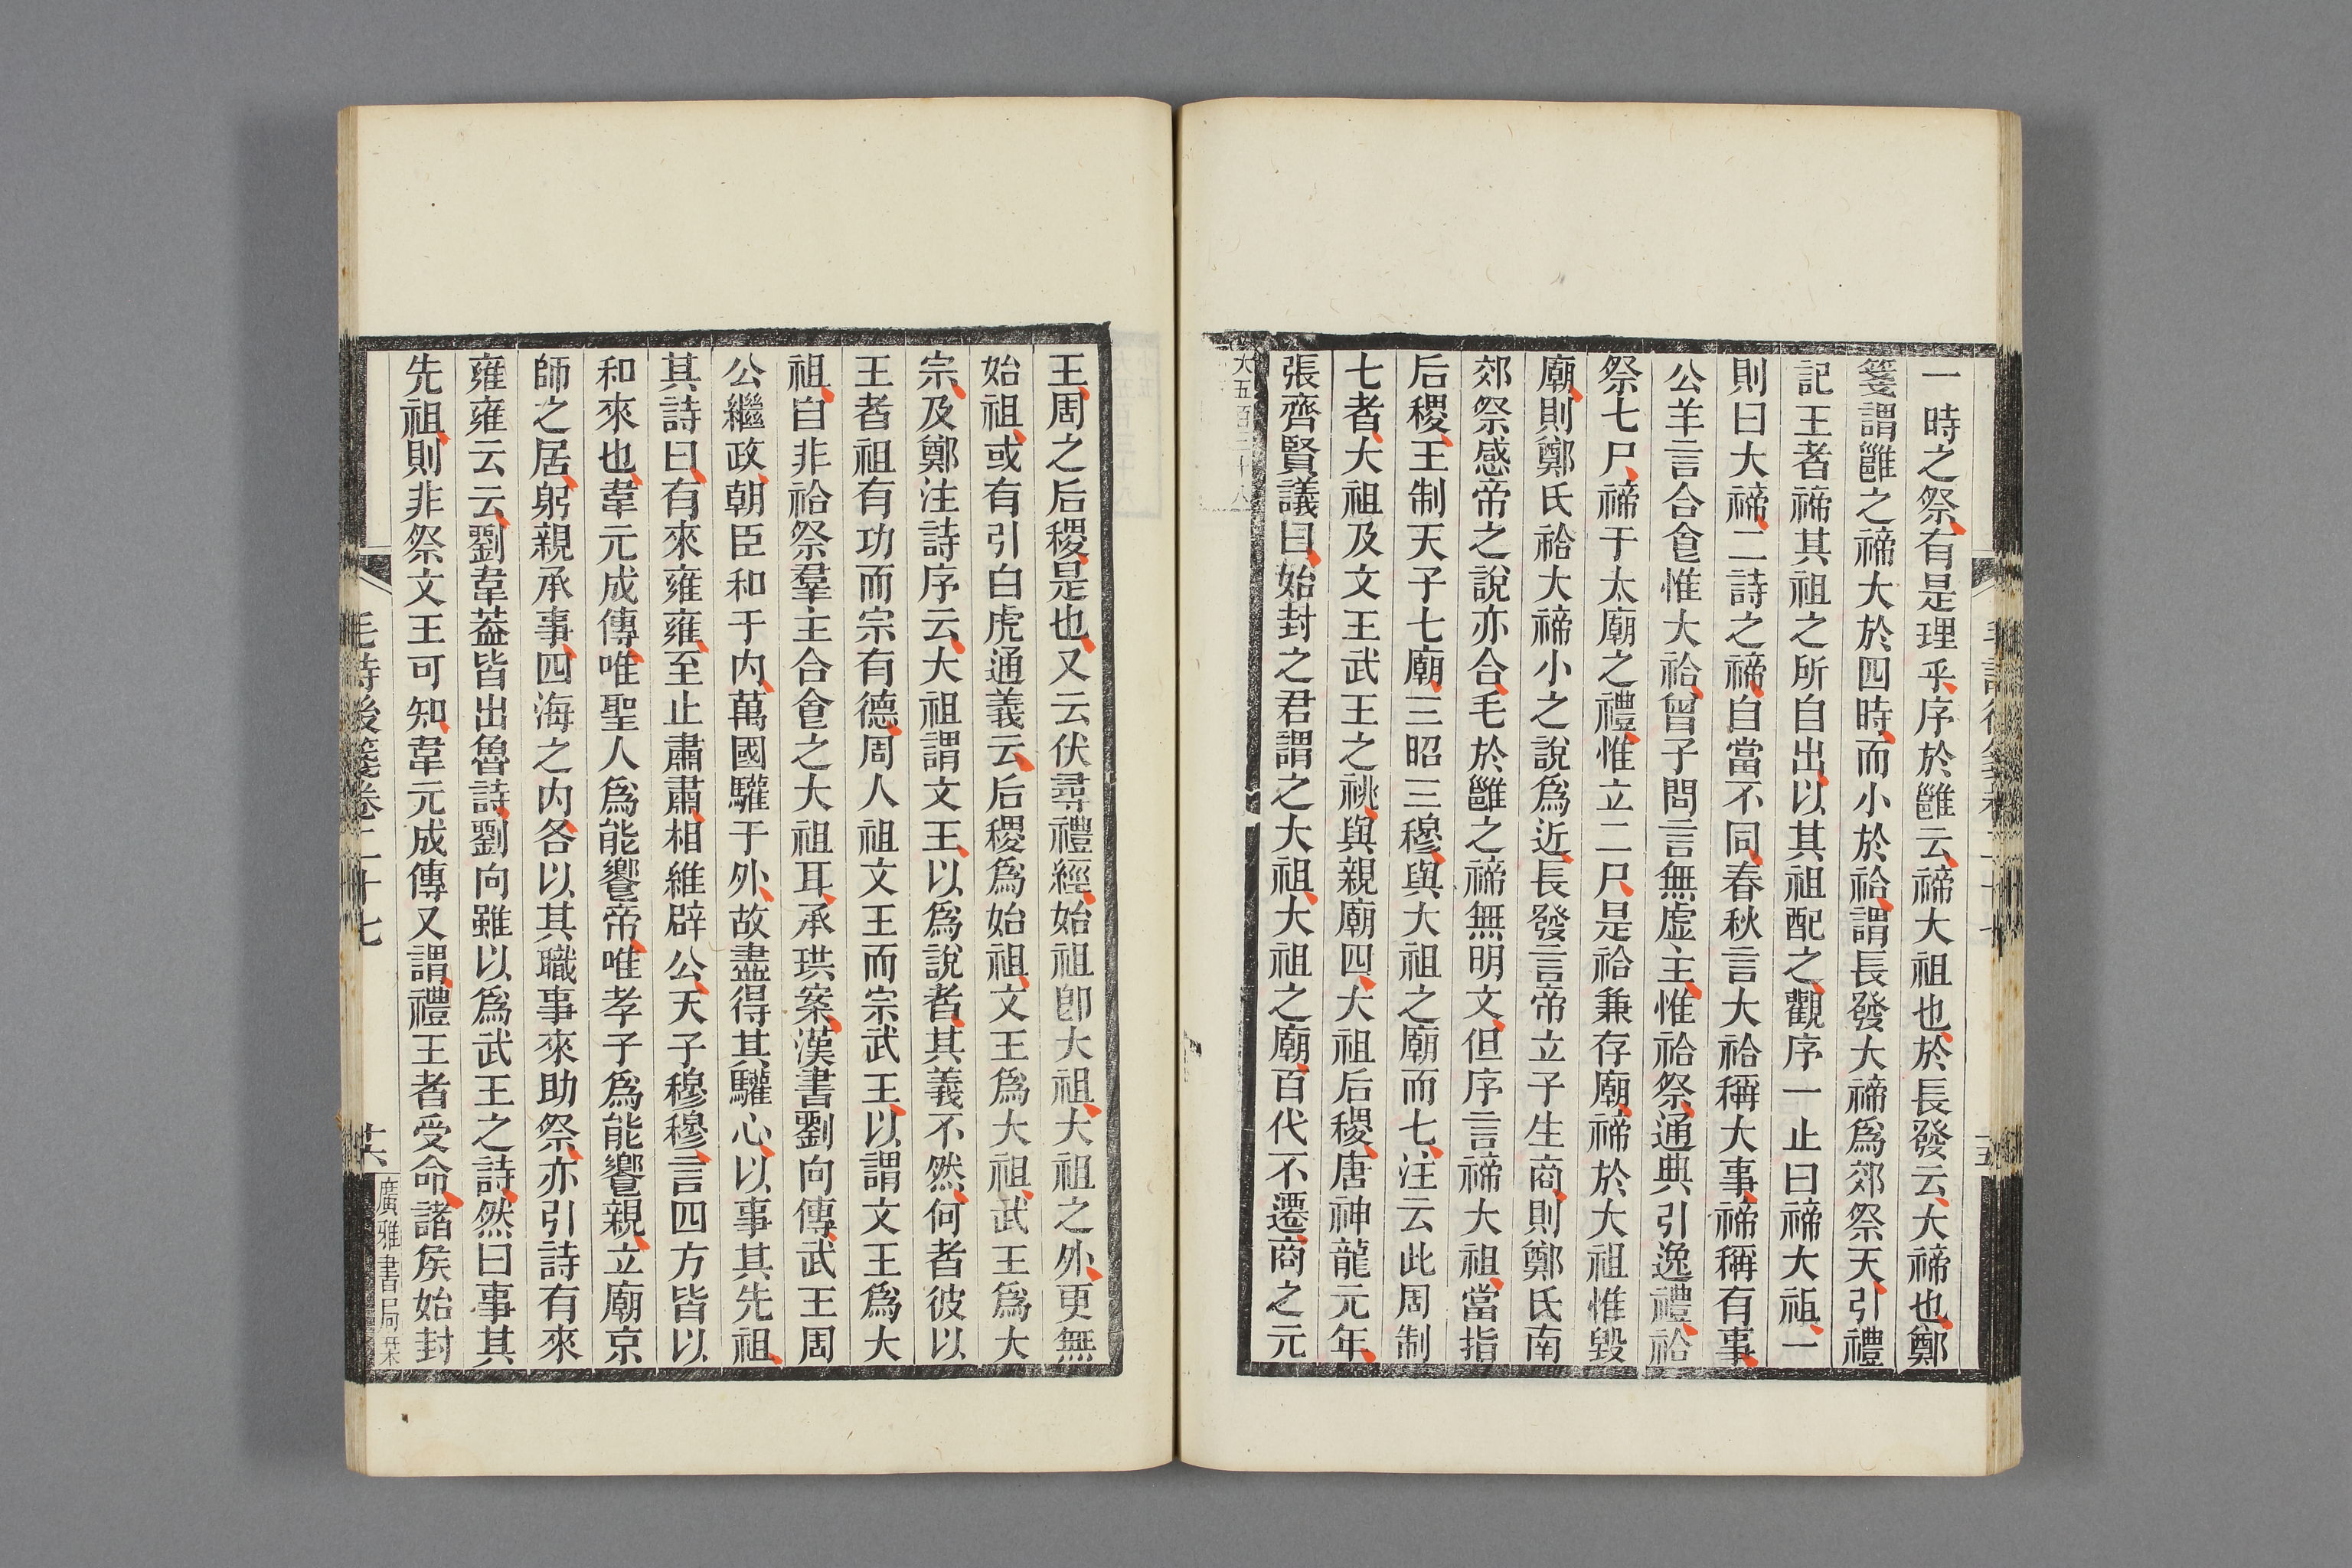 一時之祭有是理乎序於雝云禘大祖也於長發云大禘也鄭
箋謂雝之禘大於四時而小於祫謂長發大禘爲郊祭天引禮
記王者禘其祖之所自出以其祖配之觀序一止曰禘大祖一
則曰大禘二詩之禘自當不同春秋言大祫稱大事禘稱有事
公羊言合食惟大祫曾子問言無虛主惟祫祭通典引逸禮祫
祭七尸禘于太廟之禮惟立二尸是祫兼存廟禘於大祖惟毀
廟則鄭氏祫大禘小之說爲近長發言帝立子生商則鄭氏南
郊祭感帝之說亦合毛於雝之禘無明文但序言禘大祖當指
后稷王制天子七廟三昭三穆與大祖之廟而七注云此周制
七者大祖及文王武王之祧與親廟四大祖后稷唐神龍元年
張齊賢議曰始封之君謂之大祖大祖之廟百代不遷商之元
大五百三十八
王周之后稷是也又云伏尋禮經始祖卽大祖大祖之外更無
始祖或有引白虎通義云后稷爲始祖文王爲大祖武王爲大
宗及鄭注詩序云大祖謂文王以爲說者其義不然何者彼以
王者祖有功而宗有德周人祖文王而宗武王以謂文王爲大
祖自非祫祭羣主合食之大祖耳承珙案漢書劉向傳武王周
公繼政朝臣和于內萬國驩于外故盡得其驩心以事其先祖
其詩曰有來雍雍至止肅肅相維辟公天子穆穆言四方皆以
和來也韋元成傳唯聖人爲能饗帝唯孝子爲能饗親立廟京
師之居躬親承事四海之內各以其職事來助祭亦引詩有來
雍雍云云劉韋葢皆出魯詩劉向雖以爲武王之詩然曰事其
先祖則非祭文王可知韋元成傳又謂禮王者受命諸矦始封
毛詩後箋卷二十七
廿六
廣雅書局栞